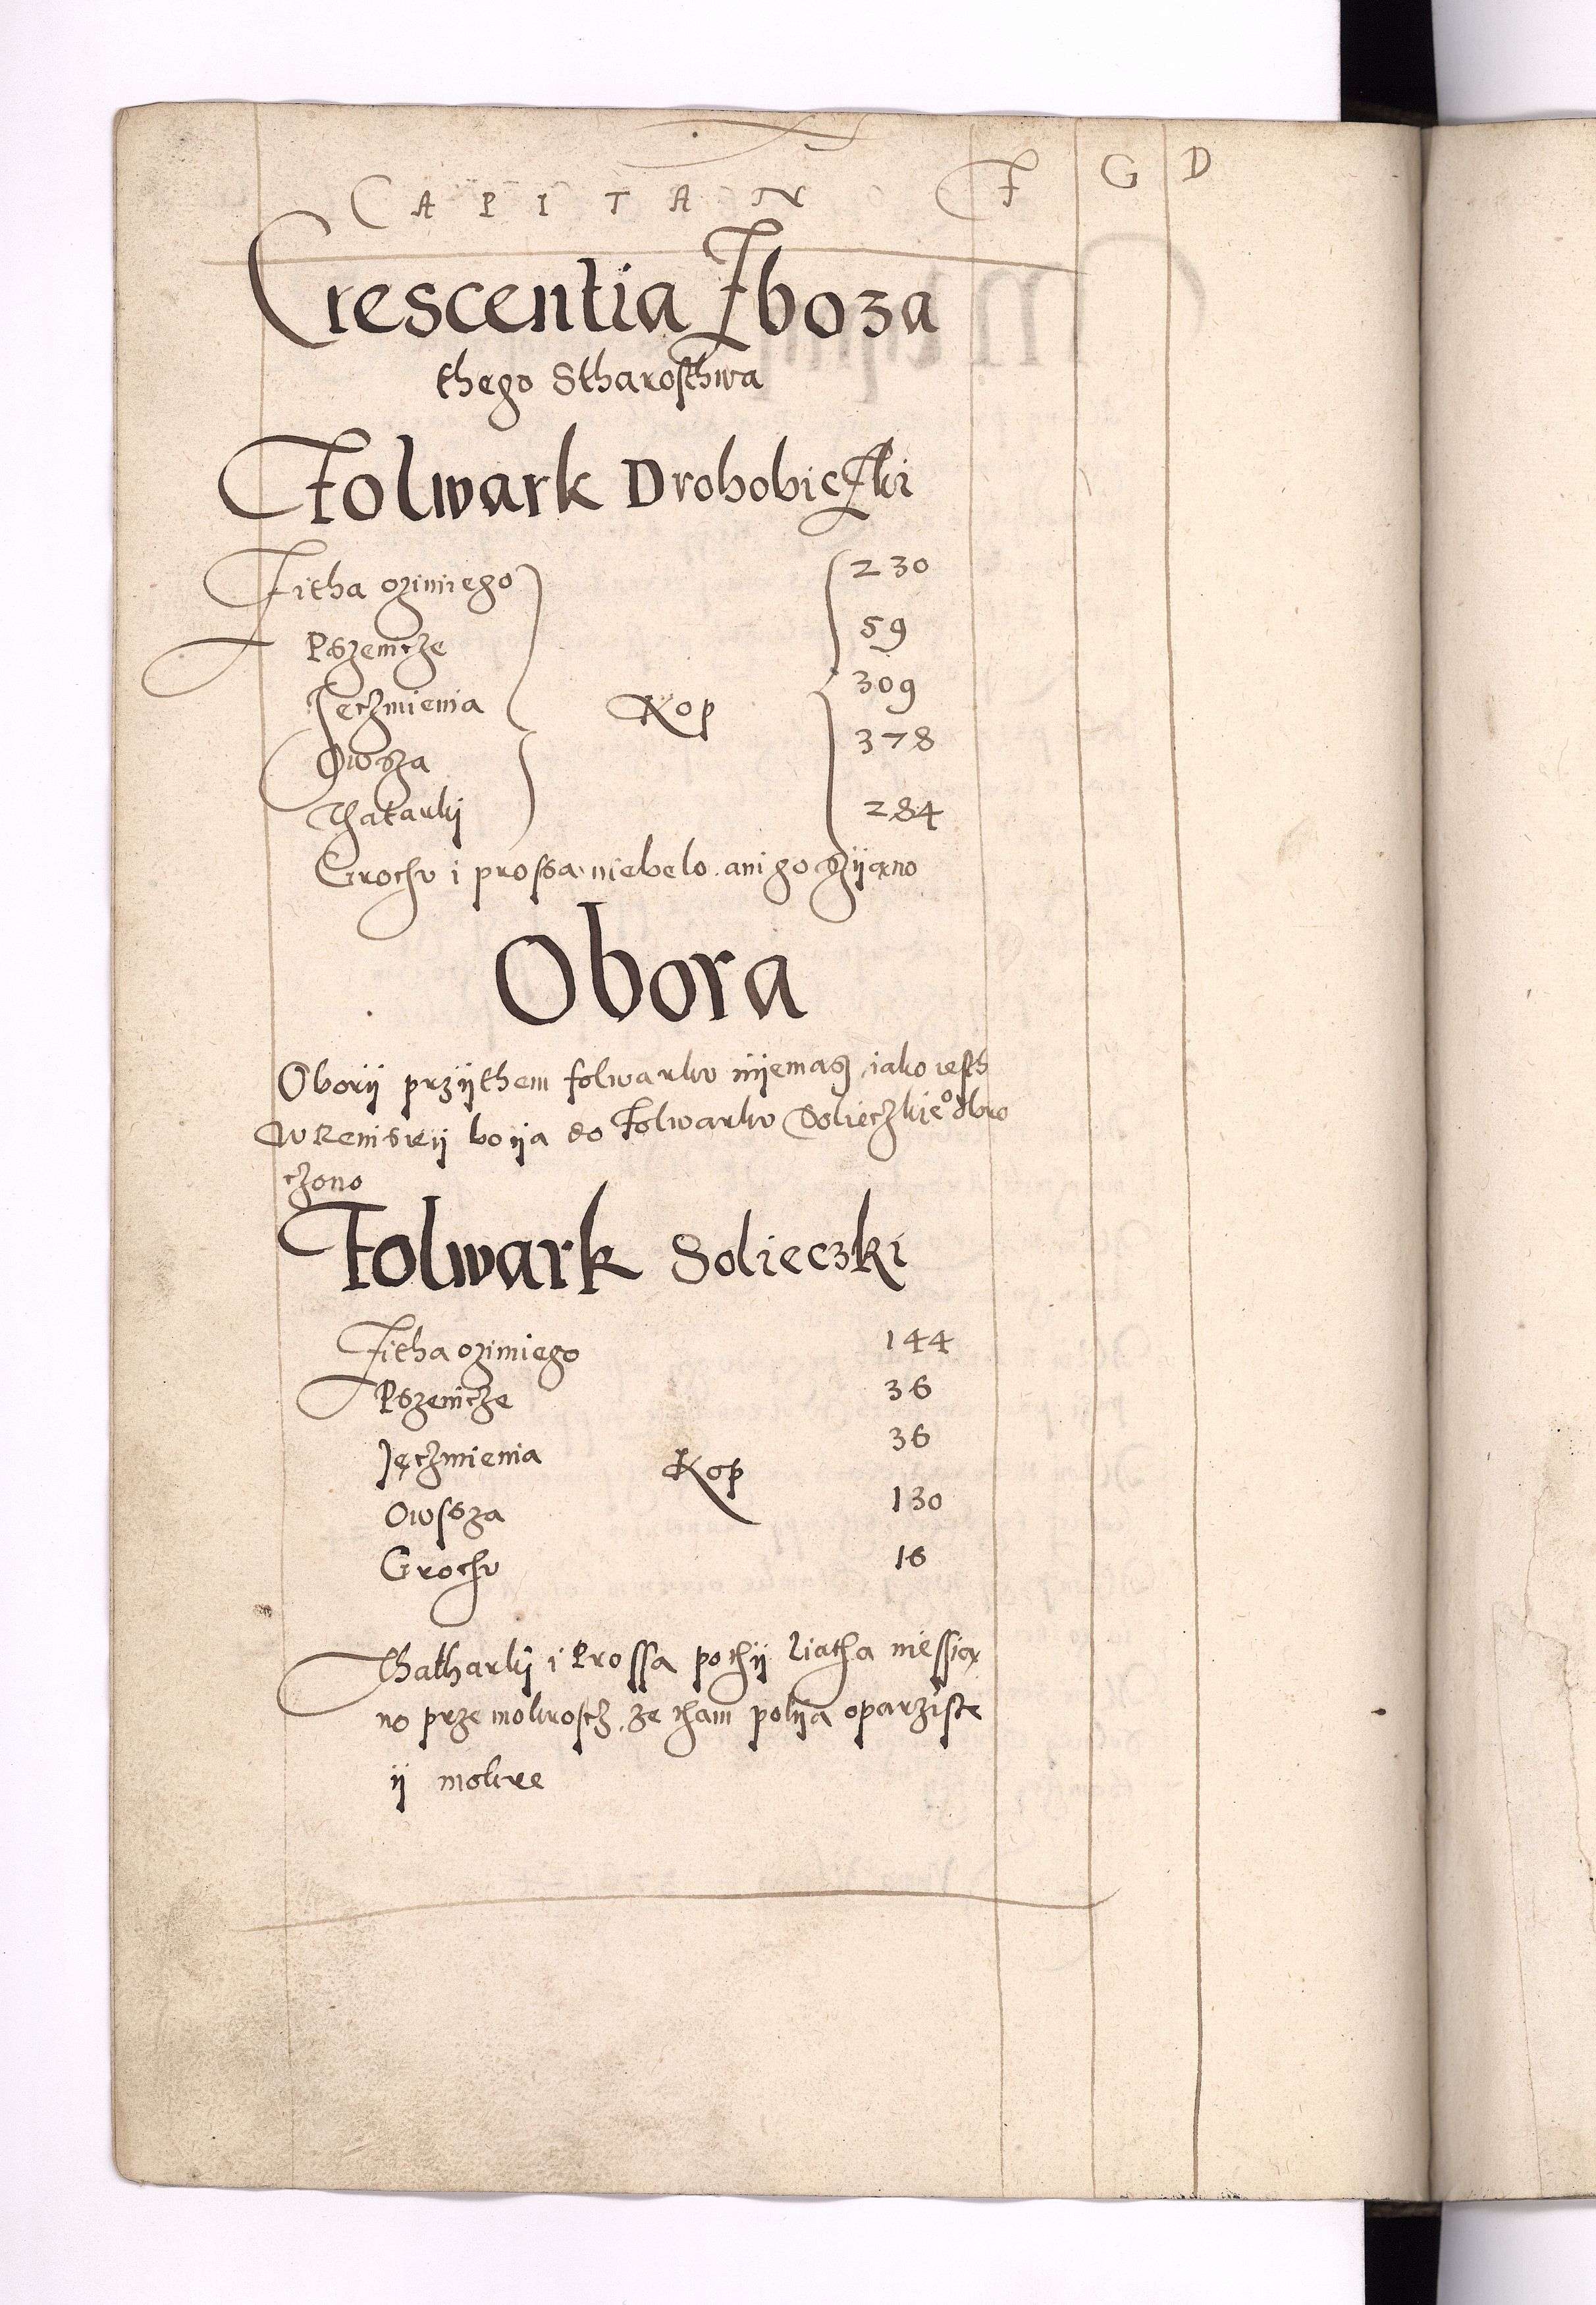 CAPITAN F G D
Crescentia Zboza
thego Starosthwa
Folwark Drohobiczki
Zitha ozimiego 230
Pszenicze 59
Jęczmienia Kop 309
Owsza 378
Thatarkj 284
Grochv i prossa niebelo ani go syano
Obora
Oborÿ przÿthem folwarkv niemasz iako iesth
w Remisieÿ bo ÿa do Folwarkv Solieczkie° obro
czono
Folwark Solieczki
Zitha ozimiego 144
Pszenicze 36
Jęczmienia Kop 36
Owssza 130
Grochv 16
Thatharkj i Prossa pothÿ liatha niessia
no prze mokroscz, ze tham polÿa oparziste
ÿ mokre